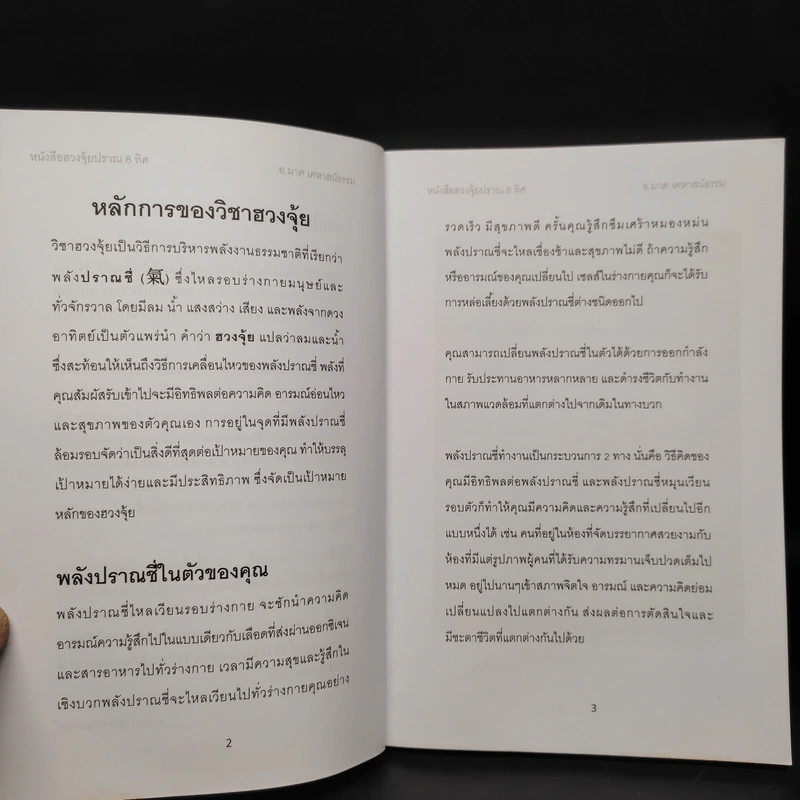 หนังสือฮวงจุ้ยปราณ 8 ทิศ
อ.มาศ เคหาสน์ธรรม
หลักการของวิชาฮวงจุ้ย
วิชาฮวงจุ้ยเป็นวิธีการบริหารพลังงานธรรมชาติที่เรียกว่า
พลังปราณชี่ (氣) ซึ่งไหลรอบร่างกายมนุษย์และ
ทั่วจักรวาล โดยมีลม น้ำ แสงสว่าง เสียง และพลังจากดวง
อาทิตย์เป็นตัวแพร่นำ คำว่า ฮวงจุ้ย แปลว่าลมและน้ำ
ซึ่งสะท้อนให้เห็นถึงวิธีการเคลื่อนไหวของพลังปราณชี่ พลังที่
คุณสัมผัสรับเข้าไปจะมีอิทธิพลต่อความคิด อารมณ์อ่อนไหว
และสุขภาพของตัวคุณเอง การอยู่ในจุดที่มีพลังปราณชี่
ล้อมรอบจัดว่าเป็นสิ่งดีที่สุดต่อเป้าหมายของคุณ ทำให้บรรลุ
เป้าหมายได้ง่ายและมีประสิทธิภาพ ซึ่งจัดเป็นเป้าหมาย
หลักของฮวงจุ้ย
พลังปราณชี่ในตัวของคุณ
พลังปราณชี่ไหลเวียนรอบร่างกาย จะชักนำความคิด
อารมณ์ความรู้สึกไปในแบบเดียวกับเลือดที่ส่งผ่านออกซิเจน
และสารอาหารไปทั่วร่างกาย เวลามีความสุขและรู้สึกใน
เชิงบวกพลังปราณชี่จะไหลเวียนไปทั่วร่างกายคุณอย่าง
2
หนังสือฮวงจุ้ยปราณ 8 ทิศ
อ.มาศ เคหาสน์ธรรม
รวดเร็ว มีสุขภาพดี ครั้นคุณรู้สึกซึมเศร้าหมองหม่น
พลังปราณชี่จะไหลเชื่องช้าและสุขภาพไม่ดี ถ้าความรู้สึก
หรืออารมณ์ของคุณเปลี่ยนไป เซลส์ในร่างกายคุณก็จะได้รับ
การหล่อเลี้ยงด้วยพลังปราณชี่ต่างชนิดออกไป
คุณสามารถเปลี่ยนพลังปราณชี่ในตัวได้ด้วยการออกกำลัง
กาย รับประทานอาหารหลากหลาย และดำรงชีวิตกับทำงาน
ในสภาพแวดล้อมที่แตกต่างไปจากเดิมในทางบวก
พลังปราณชี่ทำงานเป็นกระบวนการ 2 ทาง นั่นคือ วิธีคิดของ
คุณมีอิทธิพลต่อพลังปราณชี่ และพลังปราณชี่หมุนเวียน
รอบตัวก็ทำให้คุณมีความคิดและความรู้สึกที่เปลี่ยนไปอีก
แบบหนึ่งได้ เช่น คนที่อยู่ในห้องที่จัดบรรยากาศสวยงามกับ
ห้องที่มีแต่รูปภาพผู้คนที่ได้รับความทรมานเจ็บปวดเต็มไป
หมด อยู่ไปนานๆเข้าสภาพจิตใจ อารมณ์ และความคิดย่อม
เปลี่ยนแปลงไปแตกต่างกัน ส่งผลต่อการตัดสินใจและ
มีชะตาชีวิตที่แตกต่างกันไปด้วย
3